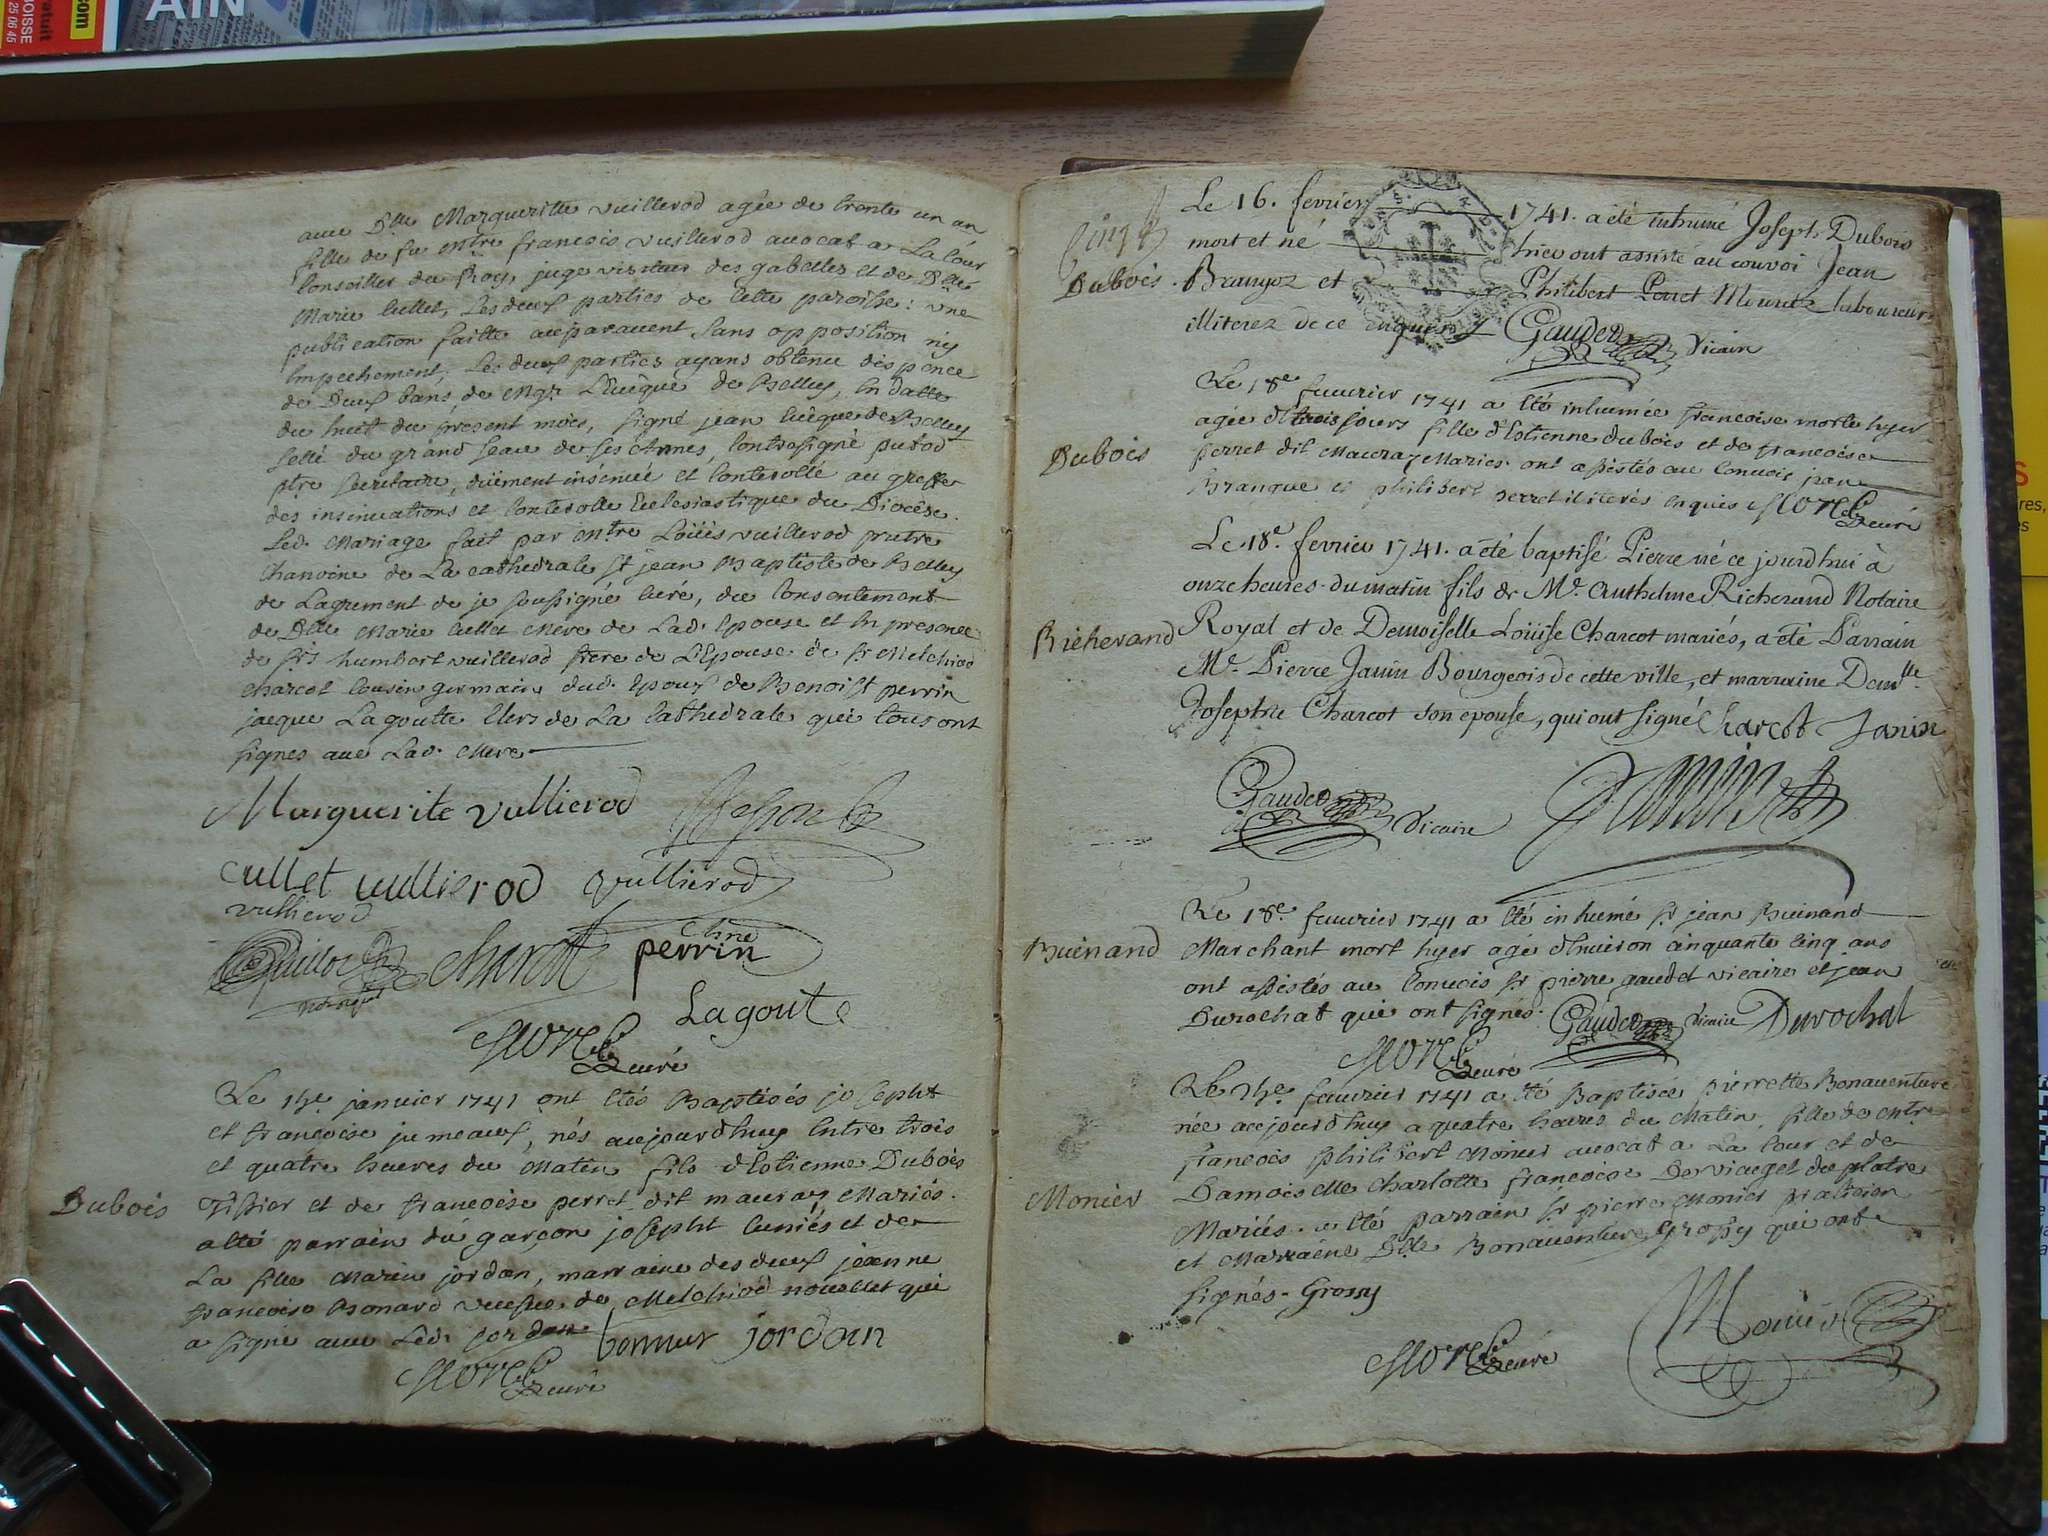 AIN
gratuit
.com
25 06 45
aueu Dlle Margueritte vuillerod agée de trente un an
fille de feu mtre francois vuillerod auocat a La Cour
Conseiller du Roy, juge visiteur des gabelles et de Dlle
Marie Cullet, Les deux parties de Cette paroisse: une
publication faitte auparauent sans opposition ny
Empechement, Les deux parties ayans obtenu dispence
de Deux bans, de Mgr L'Euêque de Belley, En datte
du huit du present mois, signé jean Euêque de Belley
sellé du grand seau de ses Armes, Contresigné
ptre secretaire, düement insinué et Controllé au greffe
des insinuations et Controlle Ecclesiastique du Diocêse.
Led. Mariage fait par mtre Loüis vuillerod pretre
Chanoine de La cathedrale St jean Baptiste de Belley
de Lagrement de je soussigné Curé, du Consentement
de Dlle Marie Cullet Mere de Lad. Epouse et En presence
de srs humbert vuillerod frere de L'Epouse de sr Melchiod
charcot Cousin germain dud. Epoux de Benoist perrin
jacque Lagoutte Clers de La Cathedrale qui tous ont
signes auec Lad. Mere
Marguerite vullierod
Cullet vullierod vullierod
vullierod
charcot perrin
Lagoute
Curé
Le janvier 1741 ont Etés Baptisés josepht
et francoise jumeaux, nés aujourdhuy Entre trois
et quatre heures du Matin fils d'Estienne Dubois
Dubois
Tissier et de francoise perret dit mauray Mariés.
a Eté parrain du garçon josepht Cuniés et de
La fille Marin jordan, marraine des deux jeanne
francoise Bonard veusue de Melchiod nouellet qui
a signé auec Led. jordan jordan
Curé
Le 16. fevrier 1741. a été inhumé Joseph Dubois
mort et né hier ont assisté au convoi Jean
Dubois.
Branyoz et Philibert Perret Mouraz laboureurs
illiterez de ce enquis Gaudet Vicaire
Le 18e feuurier 1741 a Eté inhumée francoise morte hyer
agée de trois jours fille d'Estienne dubois et de francoise
Dubois
perret dit Mauray Maries. ont assistés au Conuois jean
Branque et philibert perret iliterés Enquis Curé
Le 18e. fevrier 1741. a été baptisé Pierre né ce jourdhui à
onze heures du matin fils de Me. Anthelme Richerand Notaire
Richerand
Royal et de Demoiselle Loüise Charcot mariés, a été Parrain
Me. Pierre Janin Bourgeois de cette ville, et marraine Demlle.
Josephte Charcot son epouse, qui ont signé Charcot Janin
Gaudet Vicaire Janin
Le 18e. feuurier 1741 a Eté inhumé sr jean Buénand
Buénand
Marchant mort hyer agé d'Enuiron cinquante Cinq ans
ont assistés au Conuois sr pierre gaudet vicaire et jean
Durochat qui ont signés. Gaudet Vicaire Durochat
Curé
Le feuurier 1741 a Eté Baptisée pierrette Bonauenture
née aujourdhuy a quatre heures du Matin, fille de mtre
francois philibert Monier auocat a La Cour et de
Damoiselle charlotte francoise Dervieuget du platre
Monier
Mariés. a Eté parrain sr pierre Monier praticien
et Marraine Dlle Bonauenture Grossy qui ont
signés. Grossy
Curé
Monier